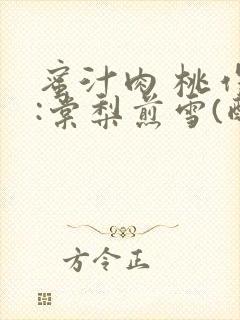 蜜汁肉桃作
:棠梨煎雪(醉
方令正